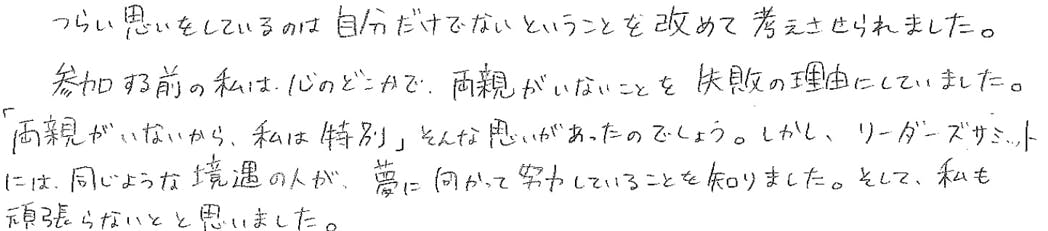 つらい思いをしているのは自分だけでないということを改めて考えさせられました。
参加する前の私は、心のどこかで、両親がいないことを失敗の理由にしていました。
「両親がいないから、私は特別」そんな思いがあったのでしょう。しかし、リーダーズサミット
には、同じような境遇の人が、夢に向かって努力していることを知りました。そして、私も
頑張らないとと思いました。